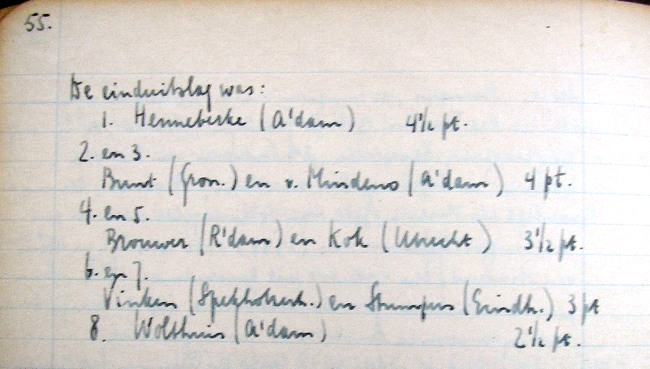 55.
De einduitslag was:
1. Henneberke (A'dam) 4½ pt.
2. en 3.
Bunt (Gron.) en v. Mindeno (A'dam) 4 pt.
4. en 5.
Brouwer (R'dam) en Kok (Utrecht) 3½ pt.
6. en 7.
Vinken (Spekholzerh.) en Stumpers (Eindh.) 3 pt
8. Wolthuis (A'dam) 2½ pt.